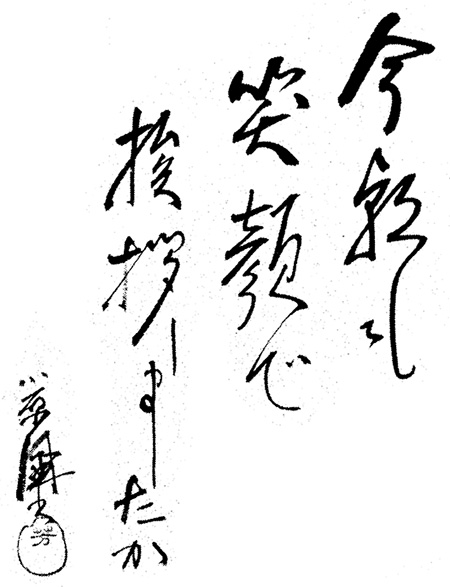 今朝も
笑顔で
挨拶しましたか
芳